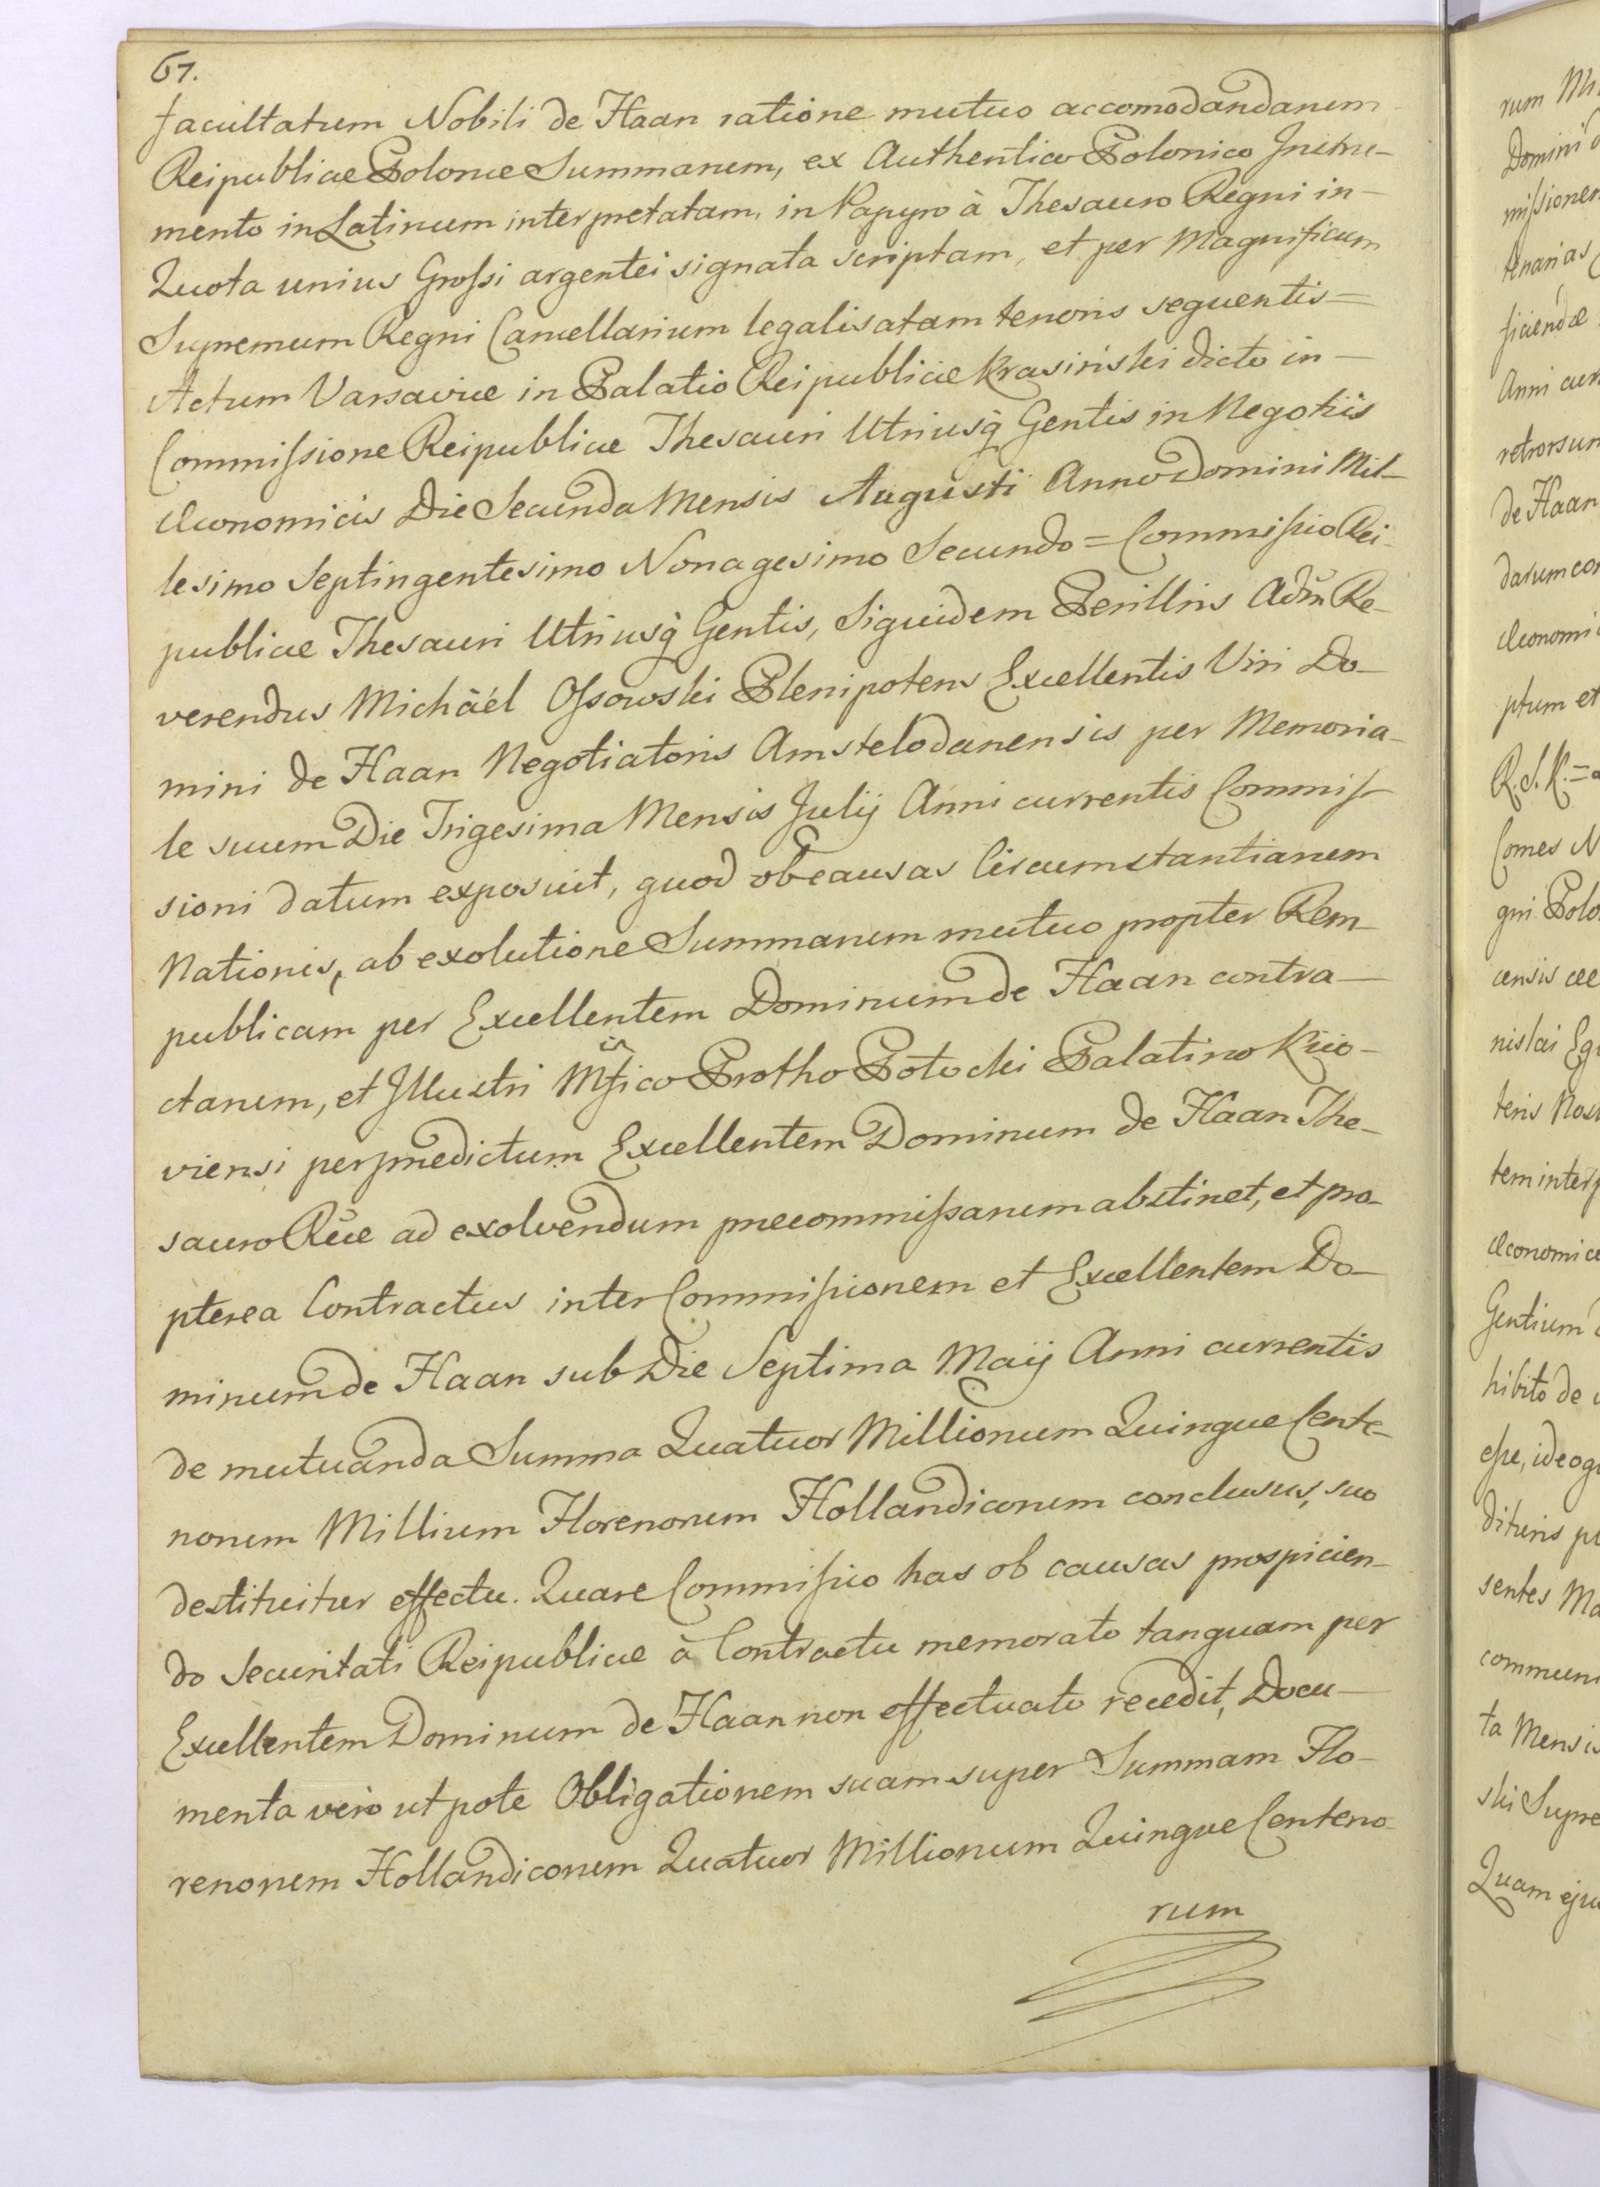 67.
facultatum Nobili de Haan ratione mutuo accomodandarum
Reipublicæ Polonæ Summarum, ex Authentico Polonico Instru-
mento in Latinum interpretatam, in Papyro à Thesauro Regni in-
Quota unius Grossi argentei signata scriptam, et per Magnificum
Supremum Regni Cancellarium legalisatam tenoris sequentis =
Actum Varsaviæ in Palatio Reipublicæ Krasiński dicto in-
Commissione Reipublicæ Thesauri Utriusq̀ Gentis in Negotiis
Œconomicis Die Secunda Mensis Augusti Anno Domini Mil-
lesimo Septingentesimo Nonagesimo Secundo = Commissio Rei-
publicæ Thesauri Utriusq̀ Gentis, Siquidem Perillris Adm̃ Re-
verendus Michäél Ossowski Plenipotens Excellentis Viri Do-
mini de Haan Negotiatoris Amstelodanensis per Memoria-
le suum Die Trigesima Mensis Julij Anni currentis Commis-
sioni datum exposuit, quod ob causas Circumstantiarum
Nationis, ab exolutione Summarum mutuo propter Rem-
publicam per Excellentem Dominum de Haan contra-
ctarum, et Illustri Mfico Protho Potocki Palatino Kiio-
viensi per prædictum Excellentem Dominum de Haan The-
sauro Rc̃æ ad exolvendum præcommissarum abstinet, et pro-
pterea Contractus inter Commissionem et Excellentem Do-
minum de Haan sub Die Septima Maij Anni currentis
de mutuanda Summa Quatuor Millionum Quinque Cente-
norum Millium Florenorum Hollandicorum conclusus, suo
destituitur effectu. Quare Commissio has ob causas prospicien-
do Securitati Reipublicæ à Contractu memorato tanquam per
Excellentem Dominum de Haan non effectuato recedit, Docu-
menta verò utpote Obligationem suam super Summam Flo-
renorum Hollandicorum Quatuor Millionum Quinque Centeno-
rum
rum
Domini
missionem
tenarias
ficiendæ
Anni curr
retrorsum
de Haan
darum con
Œconomi
ptum et
R. S. K. =
Comes N
gni Polo
censis
nislai Equ
teris Nos
tem interp
Œconomic
Gentium
hibito de
esse, ideoqu
dituris
sentes Ma
communi
ta Mensis
ski Supre
Quam eju